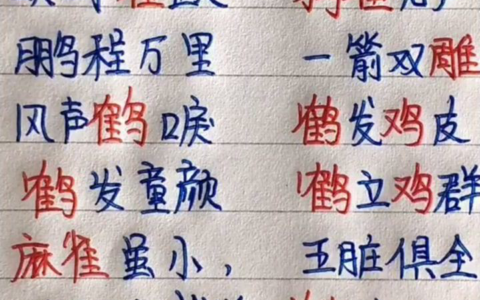 鹏程万里 一箭双雕
风声鹤唳 鹤发鸡皮
鹤发童颜 鹤立鸡群
麻雀虽小， 五脏俱全